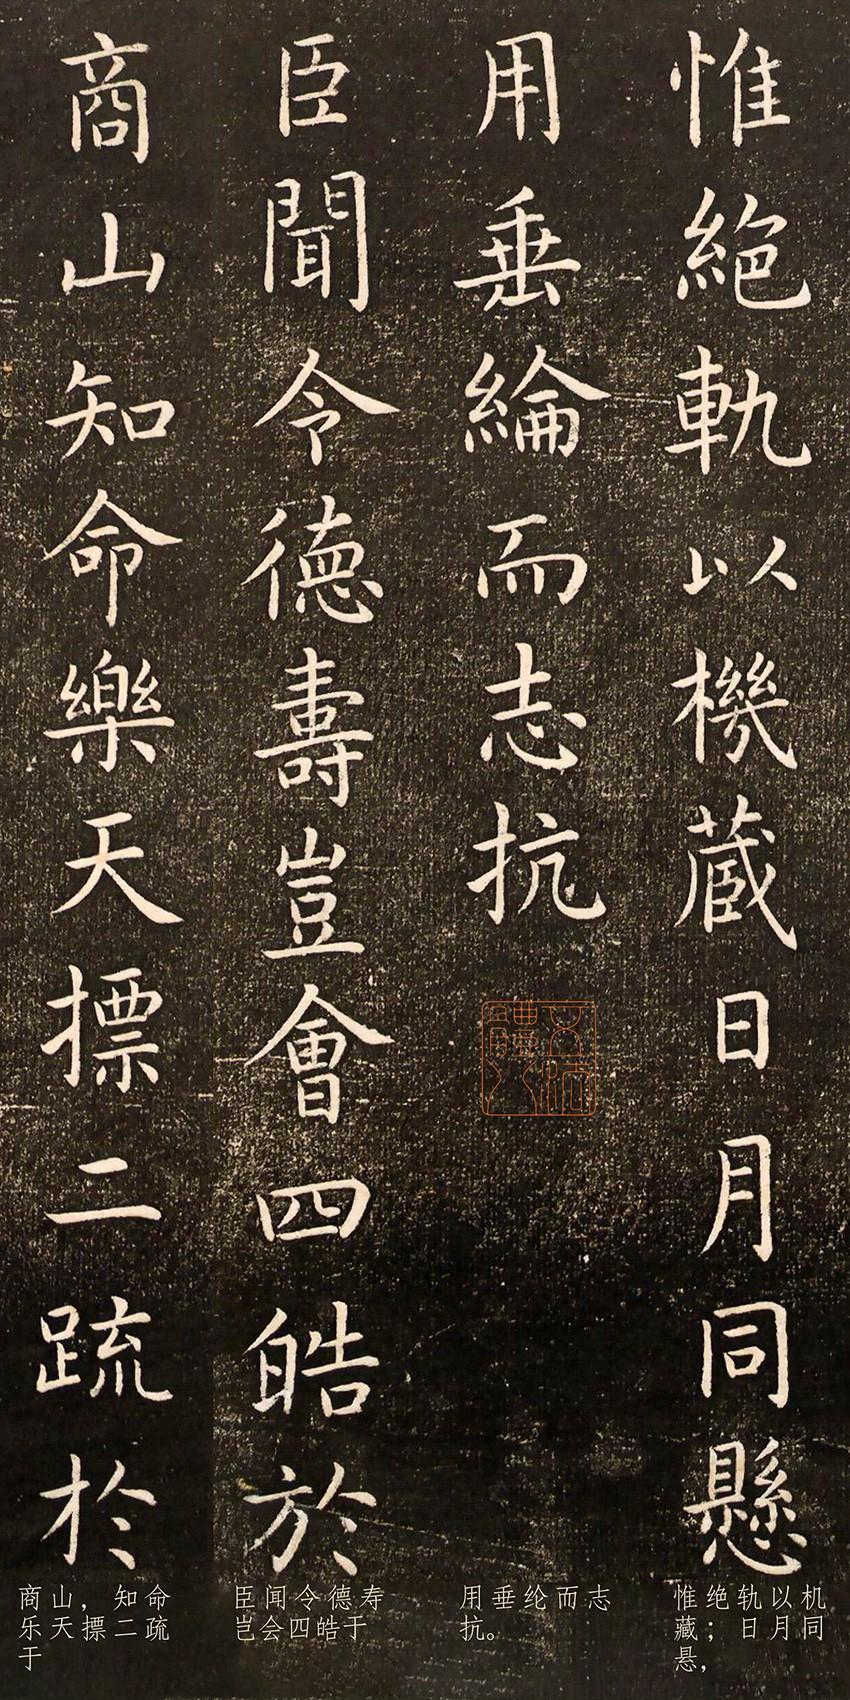 惟絕軌以機蔵日月同懸
用垂綸而志抗
臣聞令德壽豈會四皓於
商山知命樂天摽二疏於
惟绝轨以机
藏；日月同
悬，
用垂纶而志
抗。
臣闻令德寿
岂会四皓于
商山，知命
乐天摽二疏
于